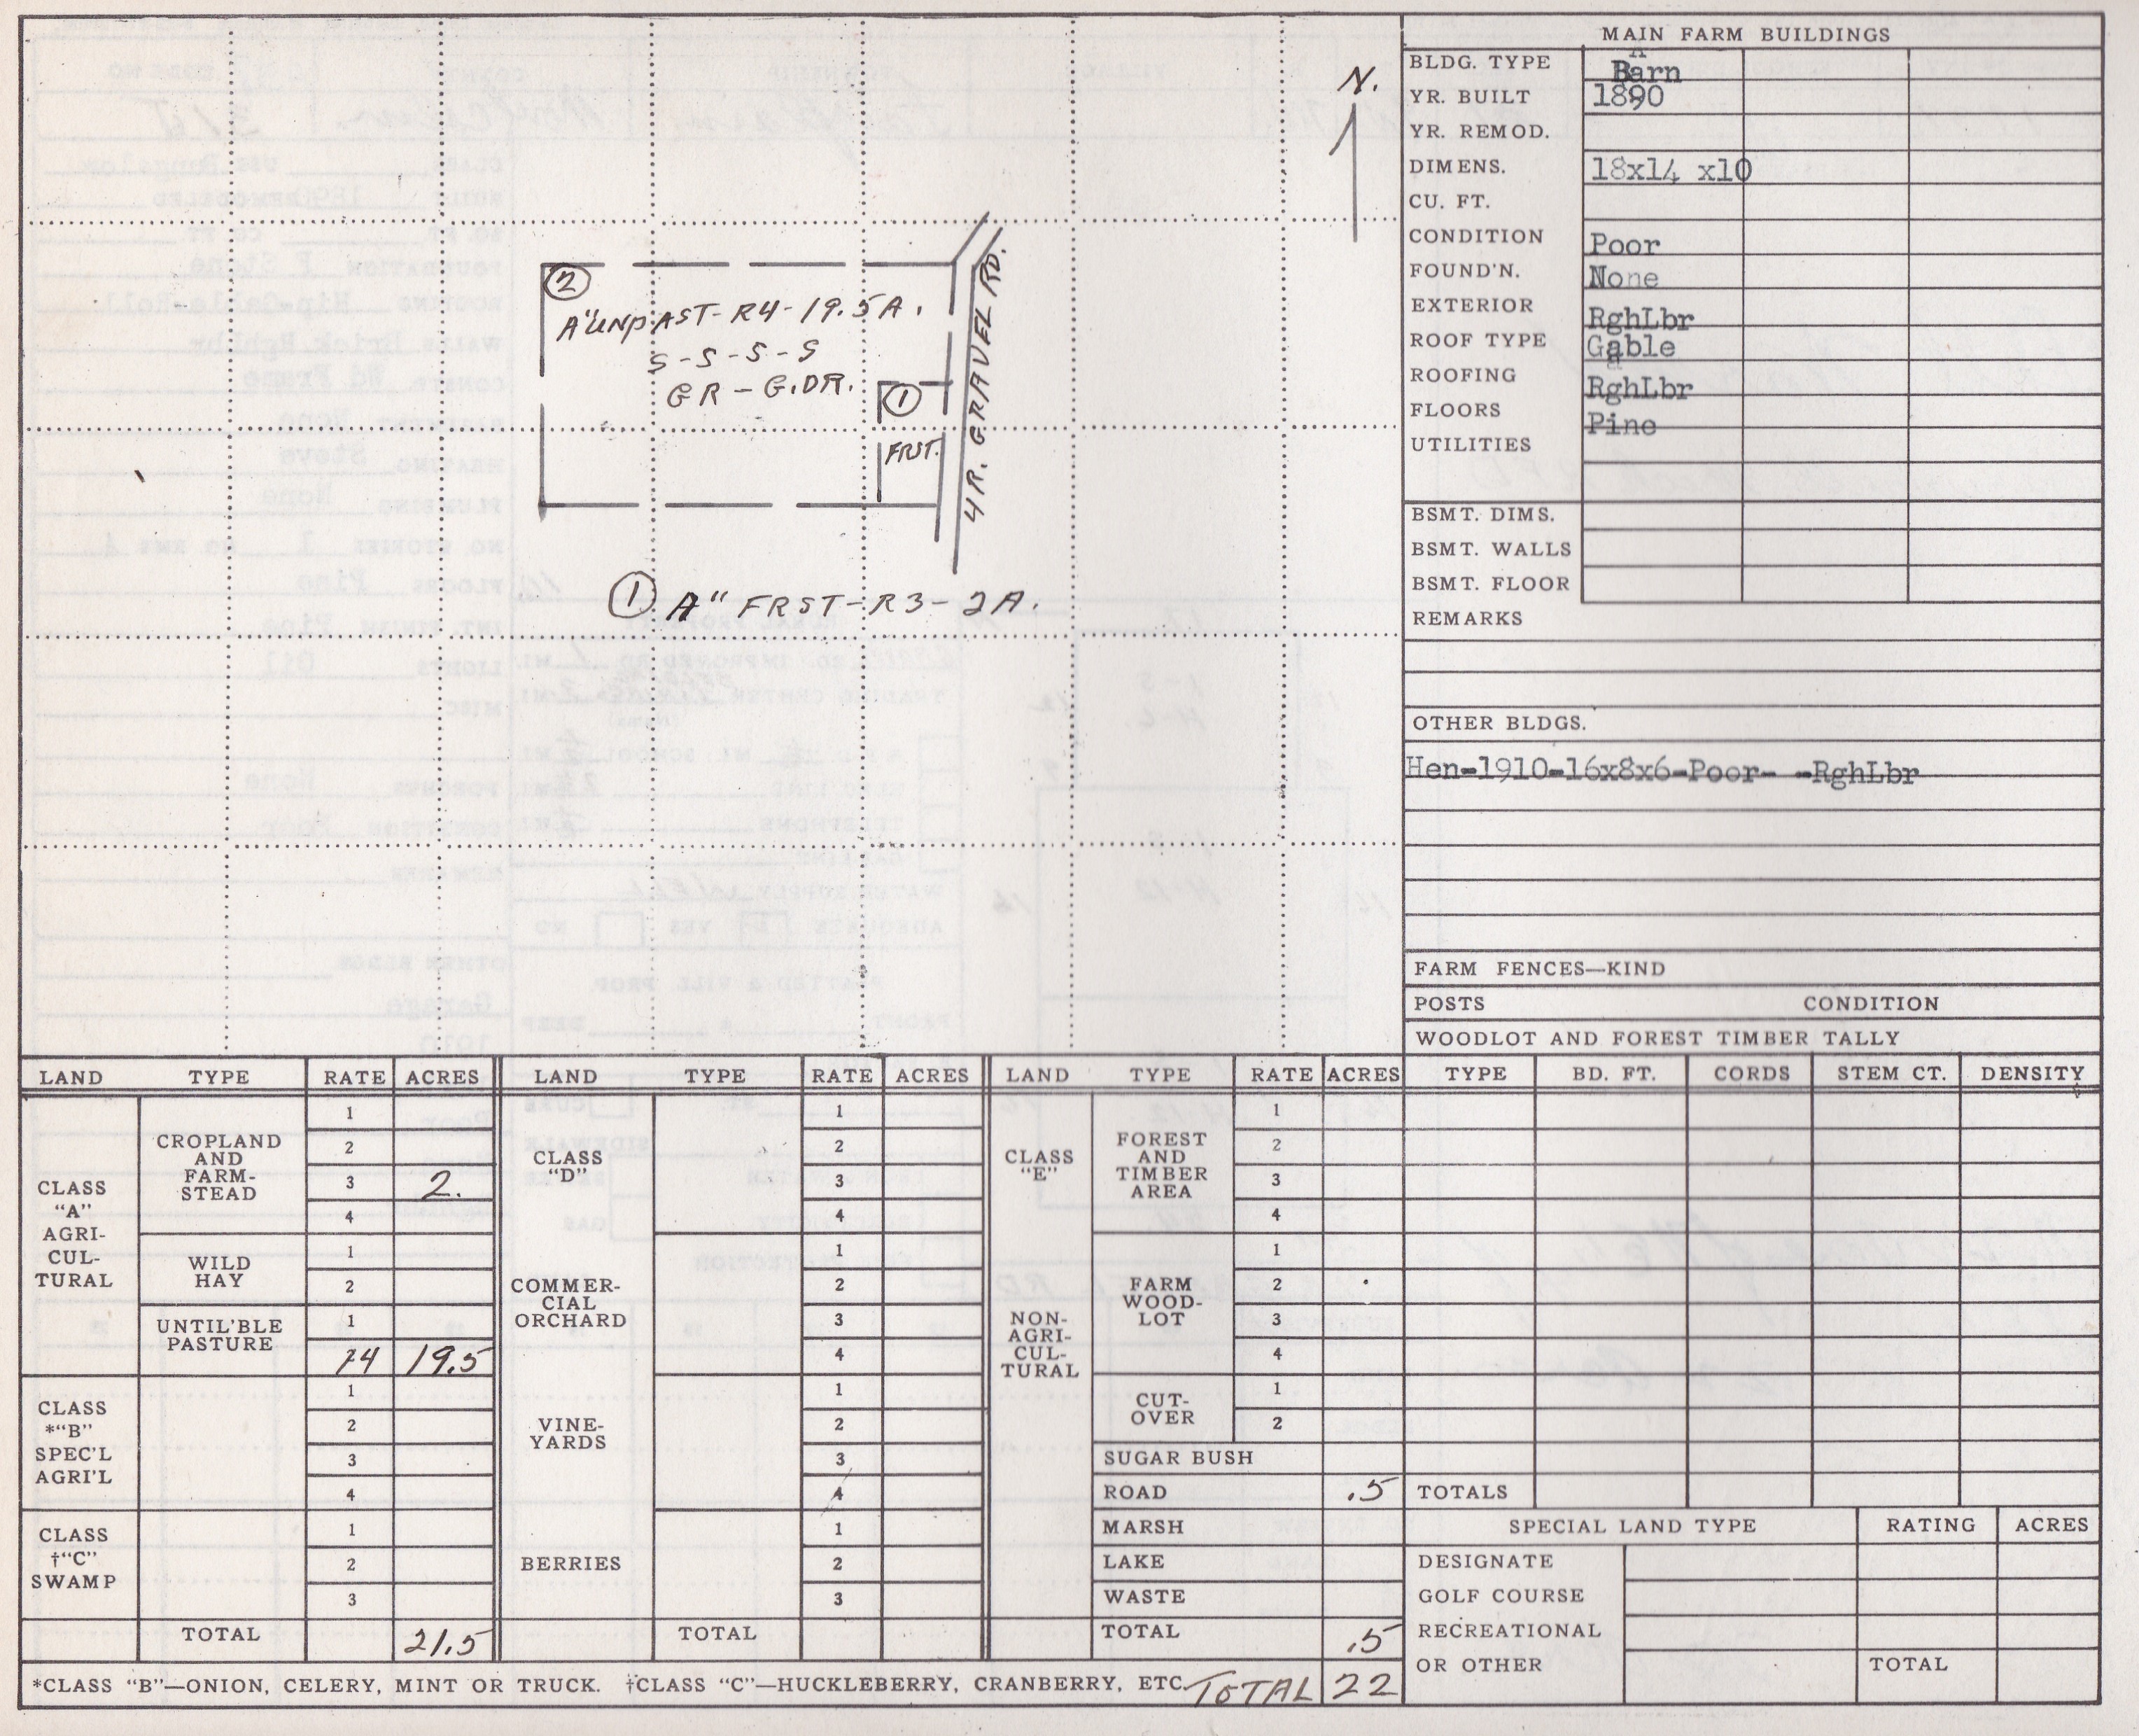 N.
②
A" UNPAST-R4-19.5A.
S-S-S-S
GR-G.DR.
①
FRST.
4 R. GRAVEL RD.
① A" FRST-R3-2A.
MAIN FARM BUILDINGS
BLDG. TYPE Barn
YR. BUILT 1890
YR. REMOD.
DIMENS. 18x14 x10
CU. FT.
CONDITION Poor
FOUND'N. None
EXTERIOR RghLbr
ROOF TYPE Gable
ROOFING RghLbr
FLOORS Pine
UTILITIES
BSMT. DIMS.
BSMT. WALLS
BSMT. FLOOR
REMARKS
OTHER BLDGS.
Hen-1910-16x8x6-Poor- -RghLbr
FARM FENCES—KIND
POSTS CONDITION
WOODLOT AND FOREST TIMBER TALLY
TYPE BD. FT. CORDS STEM CT. DENSITY
TOTALS
LAND TYPE RATE ACRES
CLASS
"A"
AGRI-
CUL-
TURAL
CROPLAND
AND
FARM-
STEAD
1
2
3 2.
4
WILD
HAY
1
2
UNTIL'BLE
PASTURE
1
24 19.5
CLASS
*"B"
SPEC'L
AGRI'L
1
2
3
4
CLASS
†"C"
SWAMP
1
2
3
TOTAL 21.5
LAND TYPE RATE ACRES
CLASS
"D"
1
2
3
4
COMMER-
CIAL
ORCHARD
1
2
3
4
VINE-
YARDS
1
2
3
4
BERRIES
1
2
3
TOTAL
LAND TYPE RATE ACRES
CLASS
"E"
NON-
AGRI-
CUL-
TURAL
FOREST
AND
TIMBER
AREA
1
2
3
4
FARM
WOOD-
LOT
1
2
3
4
CUT-
OVER
1
2
SUGAR BUSH
ROAD .5
MARSH
LAKE
WASTE
TOTAL .5
SPECIAL LAND TYPE RATING ACRES
DESIGNATE
GOLF COURSE
RECREATIONAL
OR OTHER
TOTAL
*CLASS "B"—ONION, CELERY, MINT OR TRUCK. †CLASS "C"—HUCKLEBERRY, CRANBERRY, ETC. TOTAL 22